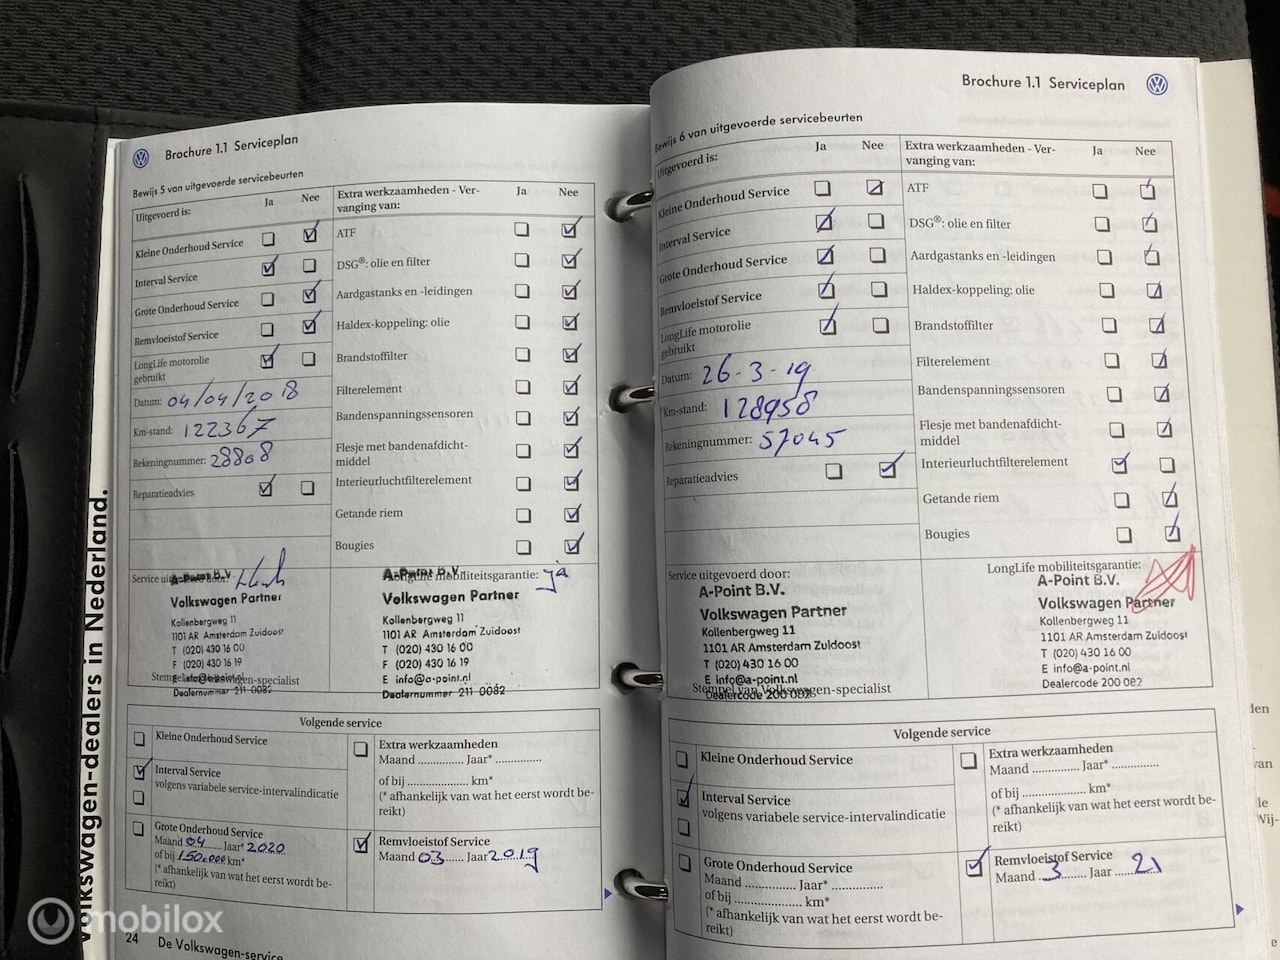 Volkswagen-dealers in Nederland.
Brochure 1.1 Serviceplan
Bewijs 5 van uitgevoerde servicebeurten
Uitgevoerd is:
Ja
Nee
Kleine Onderhoud Service
Interval Service
Grote Onderhoud Service
Remvloeistof Service
LongLife motorolie
gebruikt
Datum: 04/04/2018
Km-stand: 122367
Rekeningnummer: 28808
Reparatieadvies
Extra werkzaamheden - Ver-
vanging van:
Ja
Nee
ATF
DSG®: olie en filter
Aardgastanks en -leidingen
Haldex-koppeling: olie
Brandstoffilter
Filterelement
Bandenspanningssensoren
Flesje met bandenafdicht-
middel
Interieurluchtfilterelement
Getande riem
Bougies
Service uitgevoerd door:
A-Point B.V.
Volkswagen Partner
Kollenbergweg 11
1101 AR Amsterdam Zuidoost
T (020) 430 16 00
F (020) 430 16 19
E info@a-point.nl
Stempel van Volkswagen-specialist
Dealernummer 211 0082
LongLife mobiliteitsgarantie: ja
A-Point B.V.
Volkswagen Partner
Kollenbergweg 11
1101 AR Amsterdam Zuidoost
T (020) 430 16 00
F (020) 430 16 19
E info@a-point.nl
Dealernummer 211 0082
Volgende service
Kleine Onderhoud Service
Interval Service
volgens variabele service-intervalindicatie
Grote Onderhoud Service
Maand 04 Jaar* 2020
of bij 150.000 km*
(* afhankelijk van wat het eerst wordt be-
reikt)
Extra werkzaamheden
Maand .............. Jaar* ..............
of bij .................... km*
(* afhankelijk van wat het eerst wordt be-
reikt)
Remvloeistof Service
Maand 03 Jaar 2019
24 De Volkswagen-service
Brochure 1.1 Serviceplan
Bewijs 6 van uitgevoerde servicebeurten
Uitgevoerd is:
Ja
Nee
Kleine Onderhoud Service
Interval Service
Grote Onderhoud Service
Remvloeistof Service
LongLife motorolie
gebruikt
Datum: 26-3-19
Km-stand: 128958
Rekeningnummer: 57045
Reparatieadvies
Extra werkzaamheden - Ver-
vanging van:
Ja
Nee
ATF
DSG®: olie en filter
Aardgastanks en -leidingen
Haldex-koppeling: olie
Brandstoffilter
Filterelement
Bandenspanningssensoren
Flesje met bandenafdicht-
middel
Interieurluchtfilterelement
Getande riem
Bougies
Service uitgevoerd door:
A-Point B.V.
Volkswagen Partner
Kollenbergweg 11
1101 AR Amsterdam Zuidoost
T (020) 430 16 00
E info@a-point.nl
Stempel van Volkswagen-specialist
Dealercode 200 082
LongLife mobiliteitsgarantie:
A-Point B.V.
Volkswagen Partner
Kollenbergweg 11
1101 AR Amsterdam Zuidoost
T (020) 430 16 00
E info@a-point.nl
Dealercode 200 082
Volgende service
Kleine Onderhoud Service
Interval Service
volgens variabele service-intervalindicatie
Grote Onderhoud Service
Maand .............. Jaar* ..............
of bij .................... km*
(* afhankelijk van wat het eerst wordt be-
reikt)
Extra werkzaamheden
Maand .............. Jaar* ..............
of bij .................... km*
(* afhankelijk van wat het eerst wordt be-
reikt)
Remvloeistof Service
Maand 3 Jaar 21
mobilox